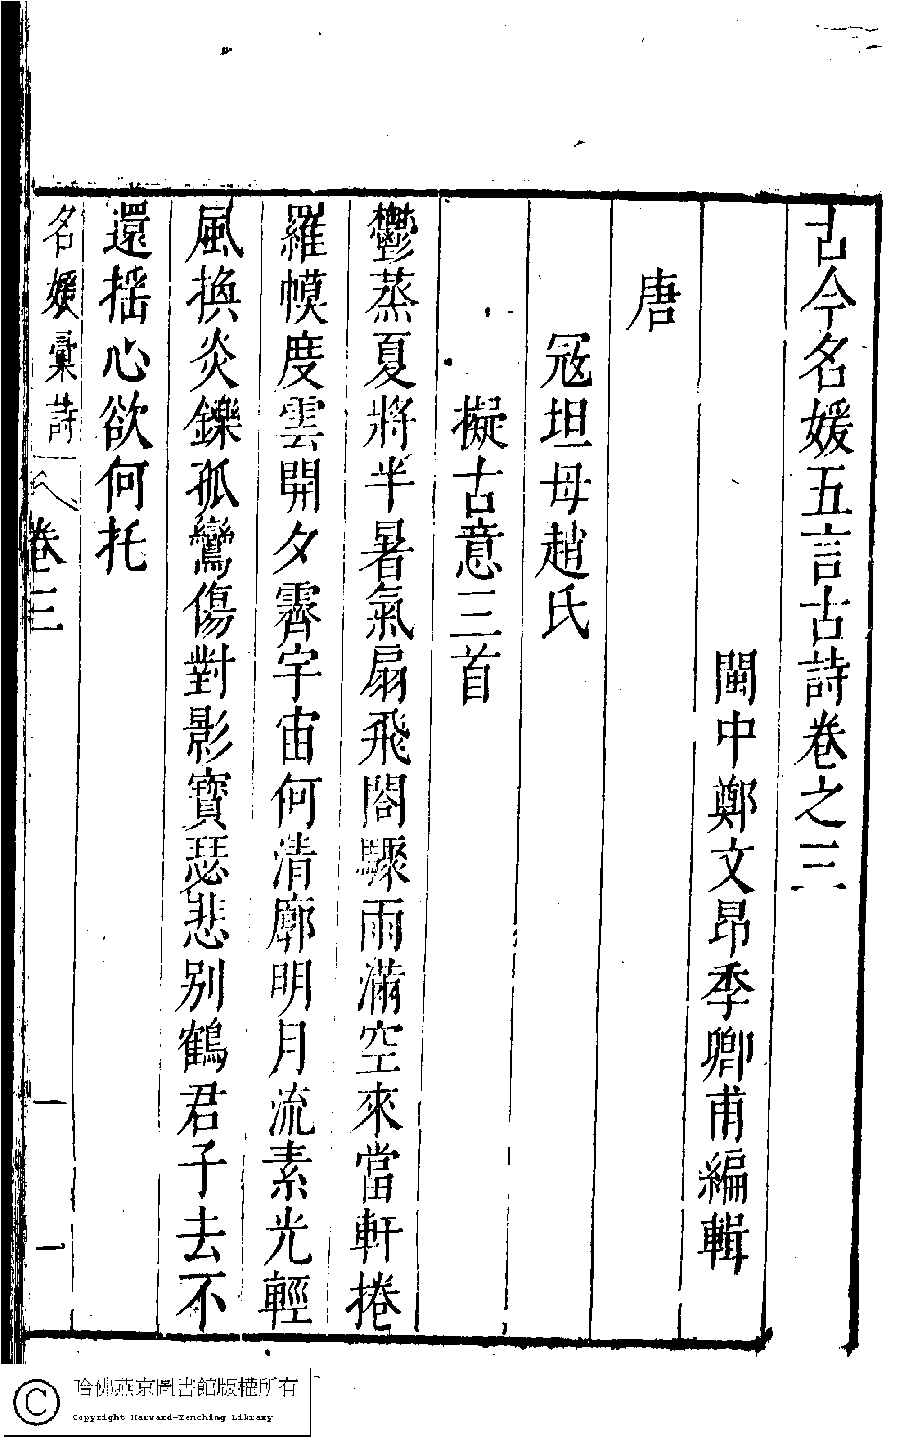 古今名媛五言古詩卷之三
閩中鄭文昂季卿甫編輯
唐
冦坦母趙氏
擬古意三首
鬱蒸夏將半暑氣扇飛閣驟雨滿空來當軒捲
羅幙度雲開夕霽宇宙何清廓明月流素光輕
風換炎鑠孤鸞傷對影寶瑟悲别鶴君子去不
還揺心欲何托
名媛彙詩
卷三
一
哈佛燕京圖書館版權所有
Copyright Harvard-Yenching Library